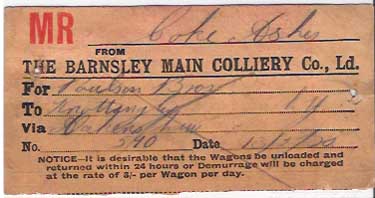 MR Coke Ashes
FROM
THE BARNSLEY MAIN COLLIERY Co., Ld.
For Poulson Bros
To Knottingley L Y
Via Oakenshaw
No. 540 Date
NOTICE—It is desirable that the Wagons be unloaded and
returned within 24 hours or Demurrage will be charged
at the rate of 3/- per Wagon per day.